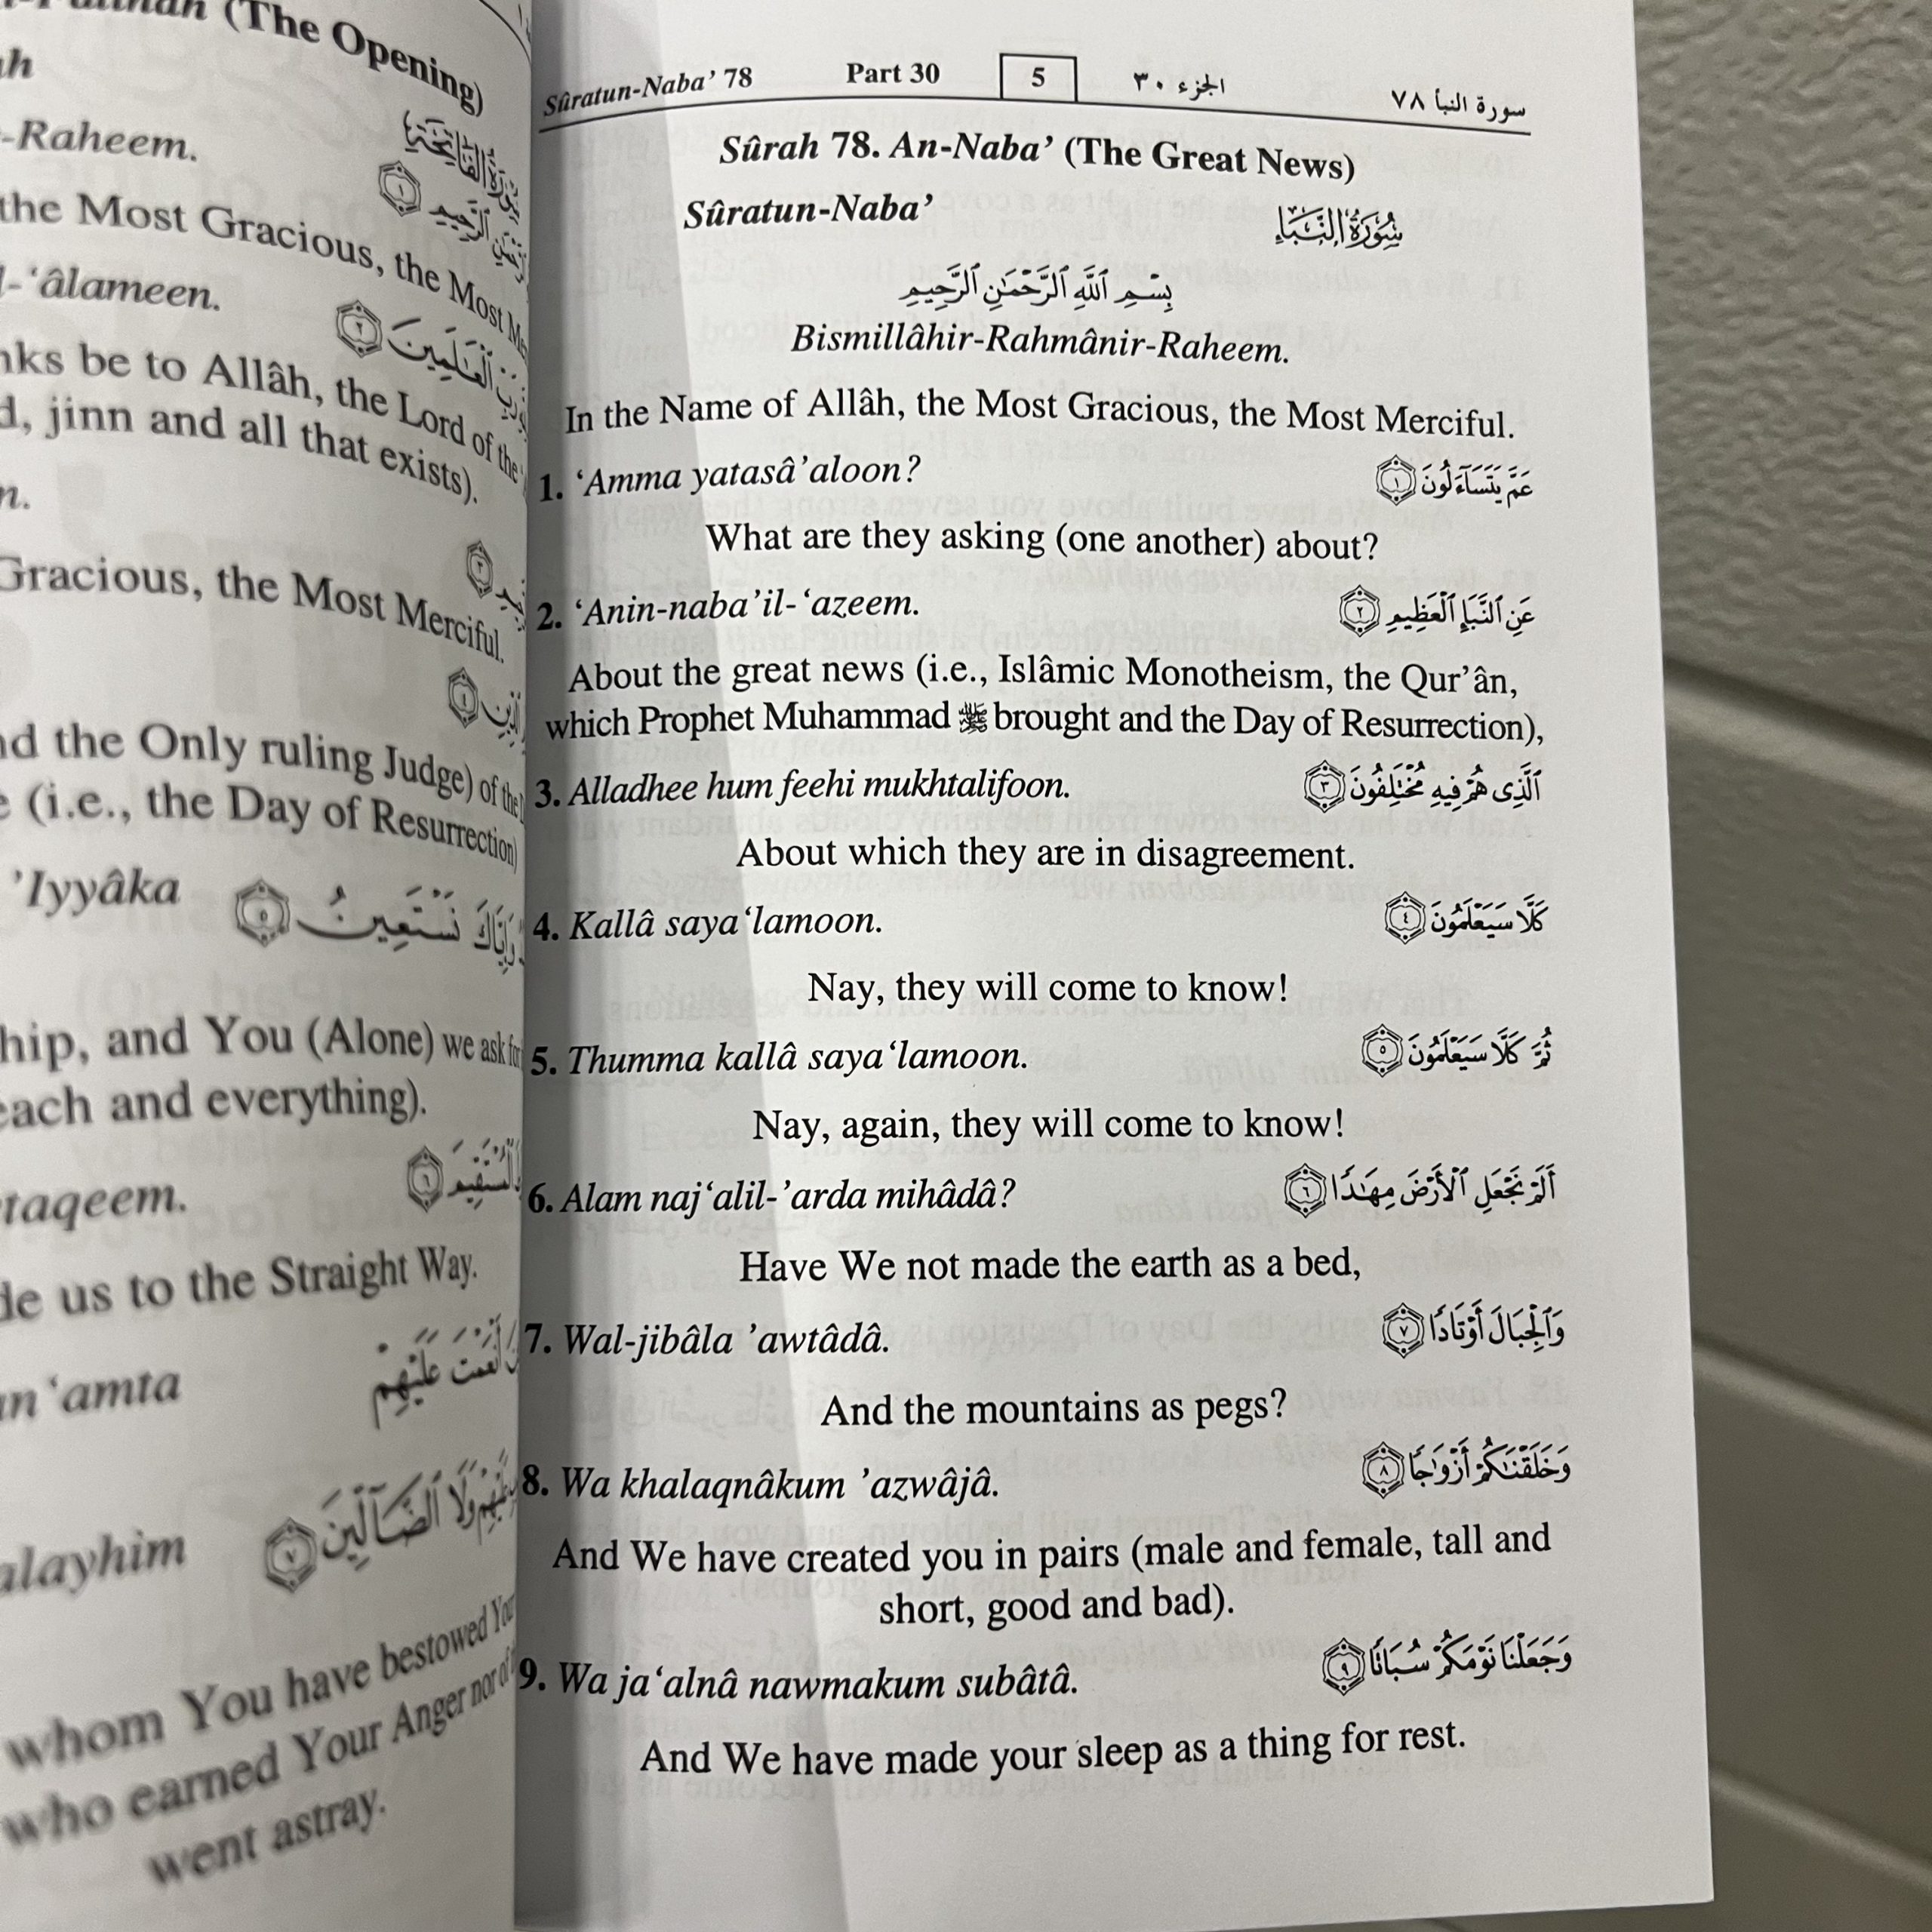 (The Opening)
-Raheem.
the Most Gracious, the Most
l-‘âlameen.
ٱلْعَـٰلَمِينَ ٢
be to Allâh, the Lord of the
jinn and all that exists).
Gracious, the Most Merciful.
the Only ruling Judge) of the
(i.e., the Day of Resurrection)
’Iyyâka
وَإِيَّاكَ نَسْتَعِينُ ٥
and You (Alone) we ask for
each and everything).
taqeem.
us to the Straight Way.
‘amta
أَنْعَمْتَ عَلَيْهِمْ
alayhim
وَلَا ٱلضَّآلِّينَ ٧
whom You have bestowed
who earned Your Anger nor of
went astray.
Sûratun-Naba’ 78 Part 30 5 الجزء ٣٠ سورة النبأ ٧٨
Sûrah 78. An-Naba’ (The Great News)
Sûratun-Naba’ سُورَةُ النَّبَإِ
بِسْمِ ٱللَّهِ ٱلرَّحْمَـٰنِ ٱلرَّحِيمِ
Bismillâhir-Rahmânir-Raheem.
In the Name of Allâh, the Most Gracious, the Most Merciful.
1. ‘Amma yatasâ’aloon? عَمَّ يَتَسَآءَلُونَ ١
What are they asking (one another) about?
2. ‘Anin-naba’il-‘azeem. عَنِ ٱلنَّبَإِ ٱلْعَظِيمِ ٢
About the great news (i.e., Islâmic Monotheism, the Qur’ân,
which Prophet Muhammad ﷺ brought and the Day of Resurrection),
3. Alladhee hum feehi mukhtalifoon. ٱلَّذِى هُمْ فِيهِ مُخْتَلِفُونَ ٣
About which they are in disagreement.
4. Kallâ saya‘lamoon. كَلَّا سَيَعْلَمُونَ ٤
Nay, they will come to know!
5. Thumma kallâ saya‘lamoon. ثُمَّ كَلَّا سَيَعْلَمُونَ ٥
Nay, again, they will come to know!
6. Alam naj‘alil-’arda mihâdâ? أَلَمْ نَجْعَلِ ٱلْأَرْضَ مِهَـٰدًا ٦
Have We not made the earth as a bed,
7. Wal-jibâla ’awtâdâ. وَٱلْجِبَالَ أَوْتَادًا ٧
And the mountains as pegs?
8. Wa khalaqnâkum ’azwâjâ. وَخَلَقْنَـٰكُمْ أَزْوَٰجًا ٨
And We have created you in pairs (male and female, tall and
short, good and bad).
9. Wa ja‘alnâ nawmakum subâtâ. وَجَعَلْنَا نَوْمَكُمْ سُبَاتًا ٩
And We have made your sleep as a thing for rest.